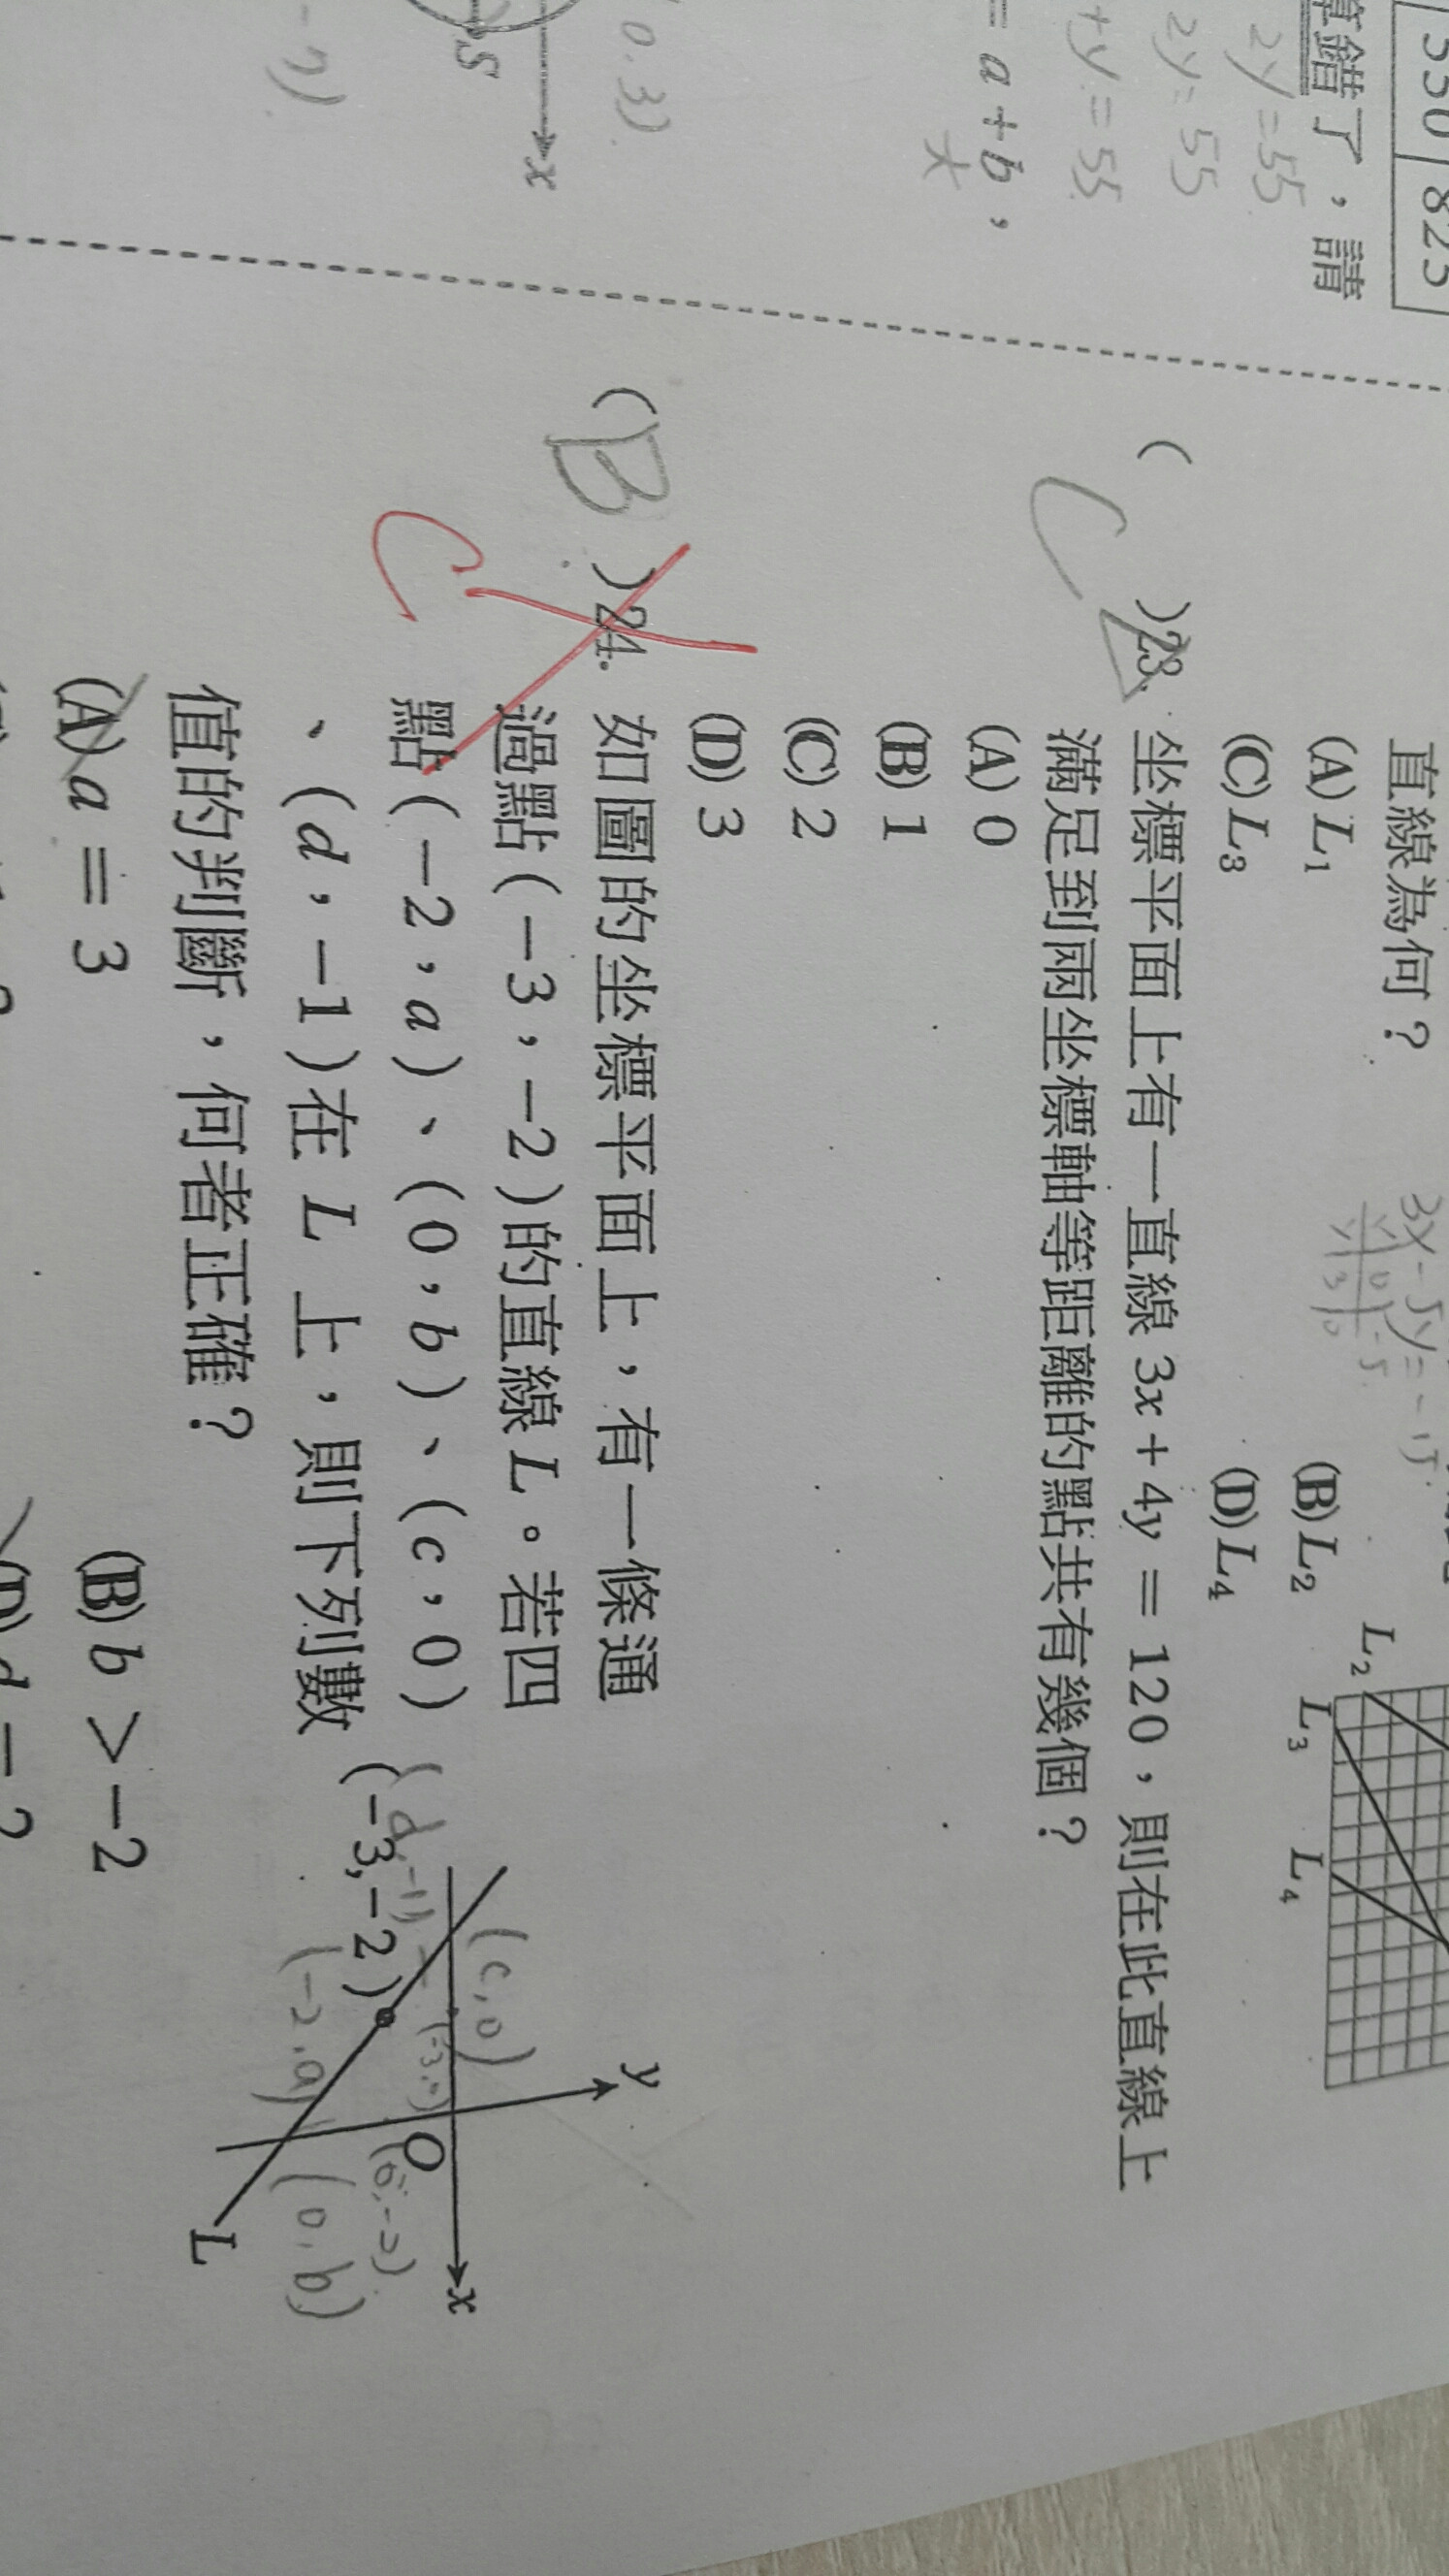 550 825
算錯了，請
2y=55
2y=55
+y=55
= a+b，
大
0.3)
x
5
-7)
直線為何？
(A) L₁ (B) L₂
(C) L₃ (D) L₄
3x-5y=-15
L₂
L₃
L₄
( C )23. 坐標平面上有一直線 3x+4y=120，則在此直線上
滿足到兩坐標軸等距離的點共有幾個？
(A) 0
(B) 1
(C) 2
(D) 3
( B )24. 如圖的坐標平面上，有一條通
C
過點(-3，-2)的直線 L。若四
點(-2，a)、(0，b)、(c，0)
、(d，-1)在 L 上，則下列數
值的判斷，何者正確？
y
(c,0)
x
O
(d,-1)
(-3,-2)
(-2,a)
(0,b)
L
(A) a = 3 (B) b > -2